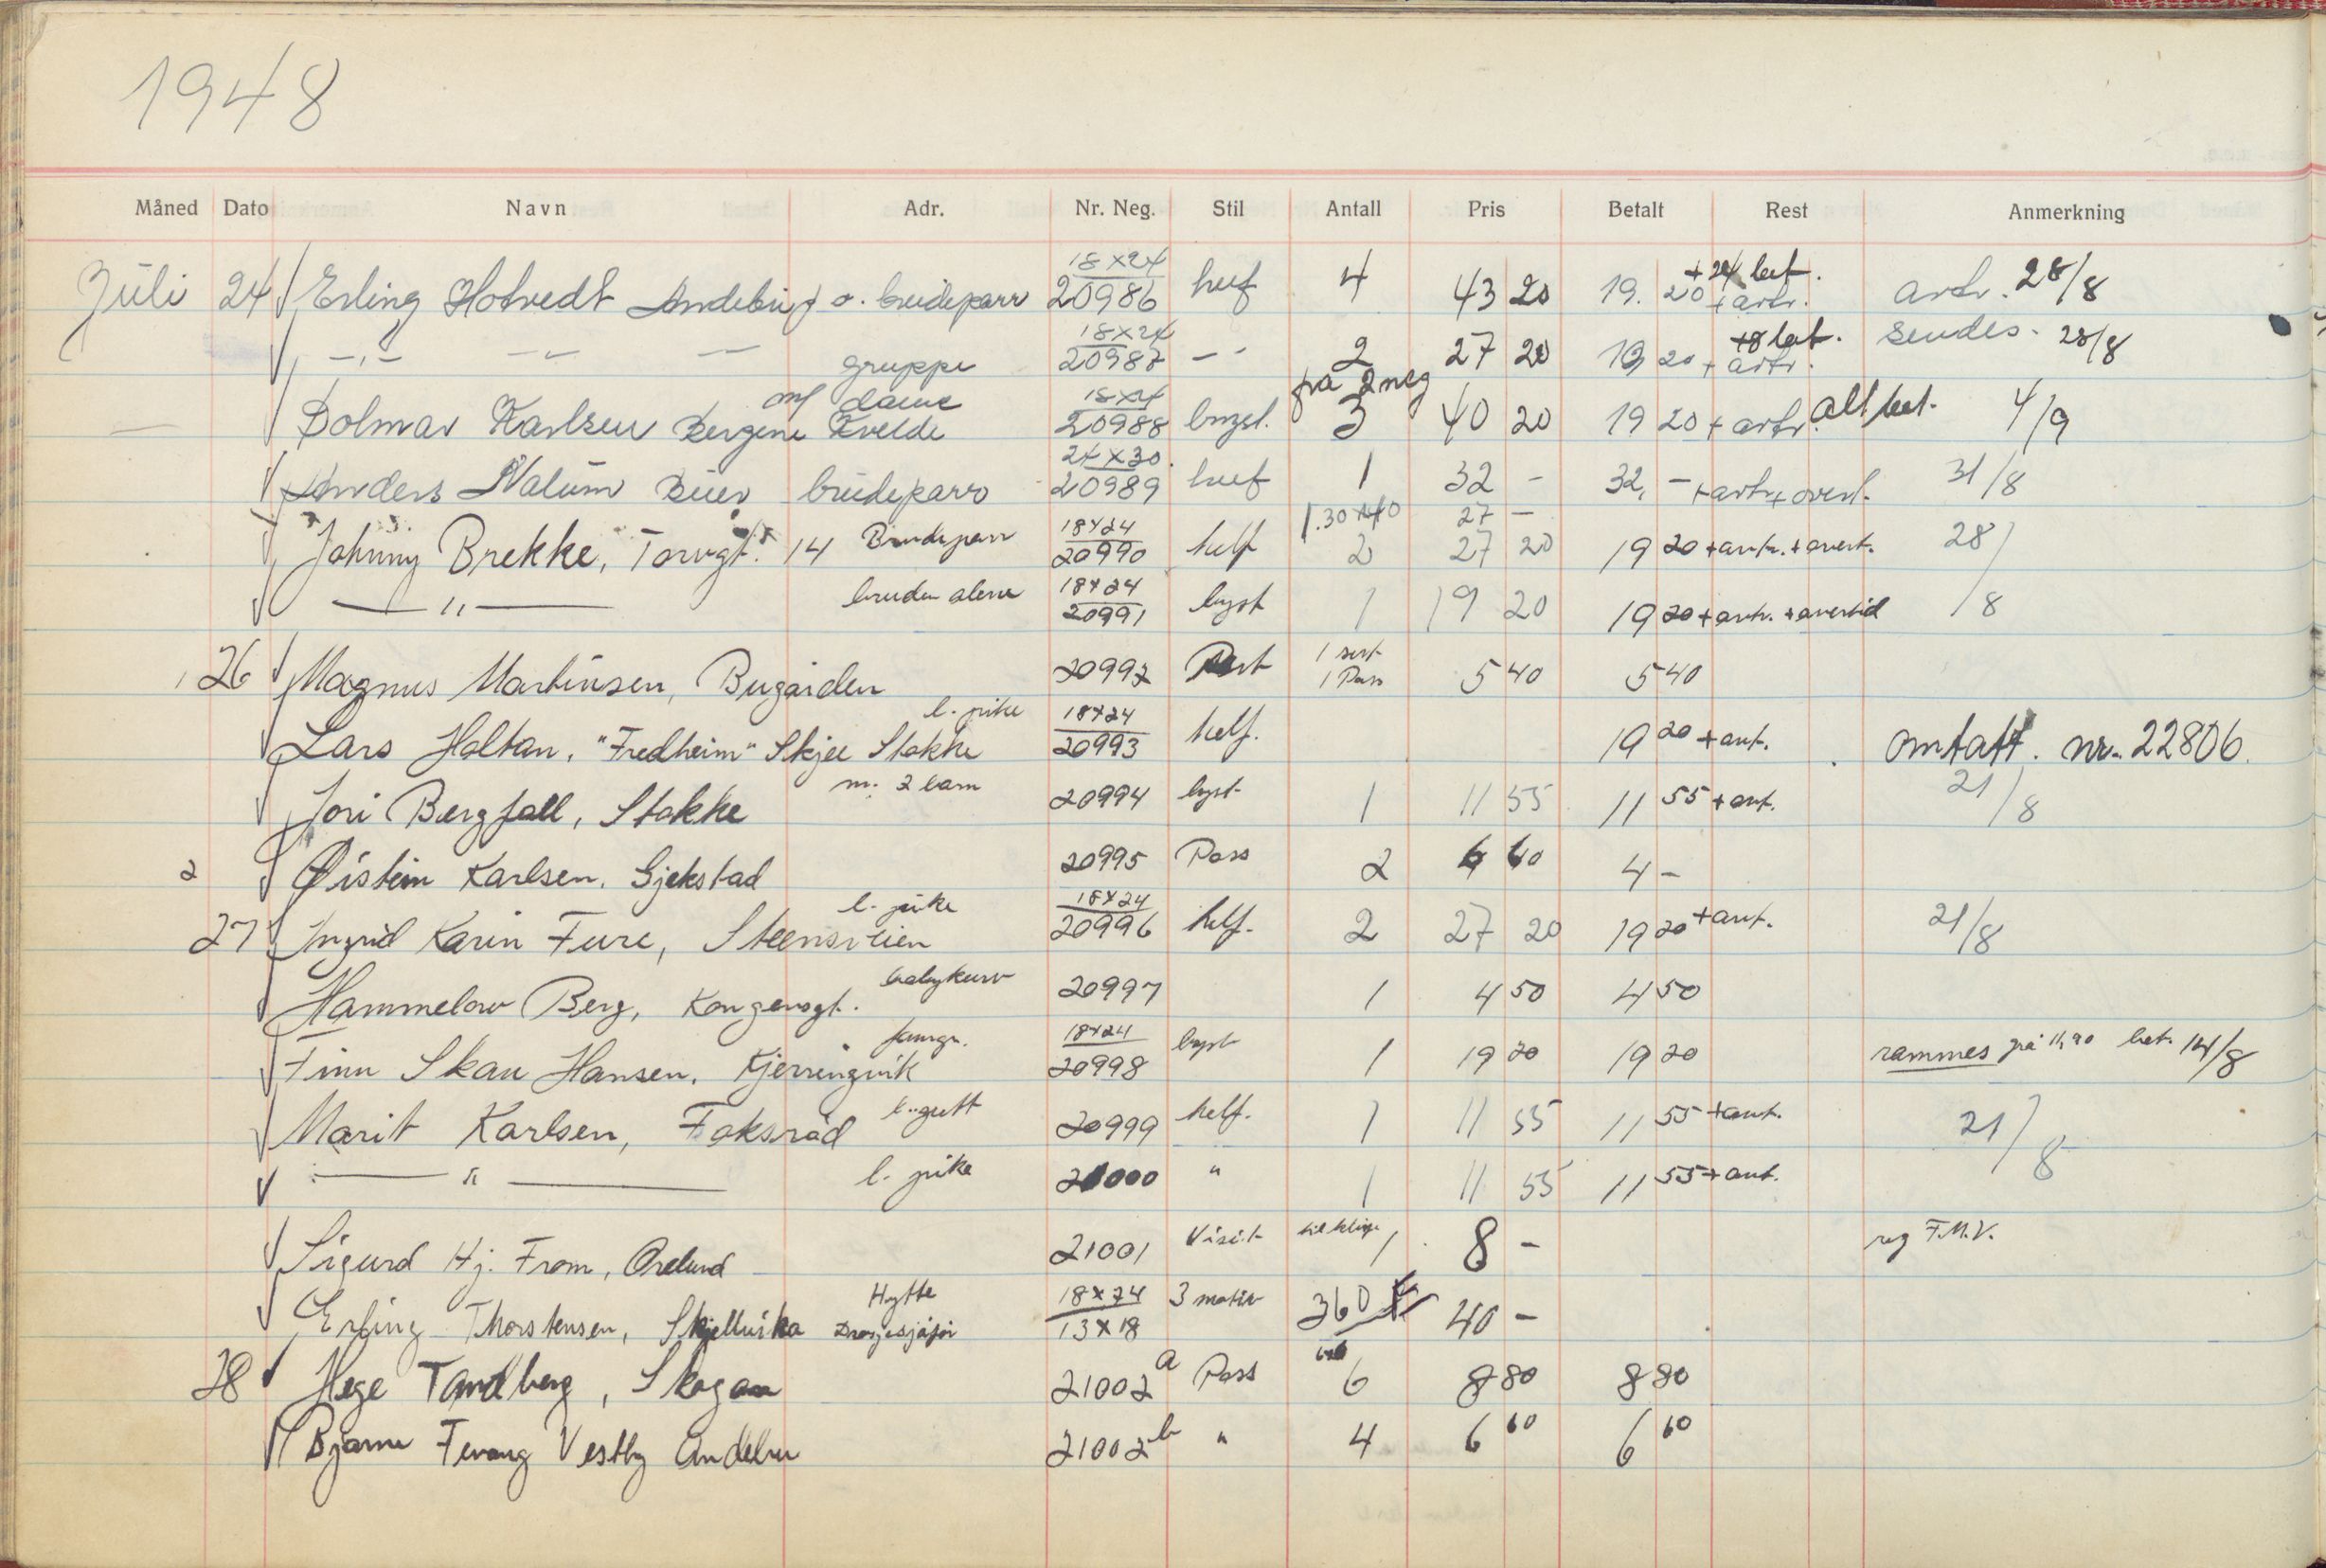 1948
Måned Dato Navn Adr. Nr. Neg. Stil Antall Pris Betalt Rest Anmerkning
Juli 24 Erling Hotvedt Andebu brudeparr 18x24 20986 4 43 20 19. 20 + 24 bet. 28/8
—"— gruppe 18x24 20987 —"— 2 27 20 19 20 + 8 bet. sendes. 28/8
Bolmar Karlsen Bergene Kvelde m/ dame 18x24 20988 på 2 neg 3 40 20 19 20 + alt bet. 4/9
Anders Nalum brudeparr 24x30 20989 1 32 - 32, - 31/8
Johnny Brekke, Torvgt. 14 Brudeparr 18x24 20990 helf 1. 30x40 27 - 2 27 20 19 20 + ant. + overt. 28/8
—"— bruden alene 18x24 20991 byst 1 19 20 19 20 + ant. + overtid
26 Magnus Martinsen, Bugården 20992 1 sert 1 Pass 5 40 5 40
Lars Holtan, "Fredheim" Skjee Stokke l. pike 18x24 20993 helf. 19 20 + ant. omtatt. nr. 22806.
Jori Bergfall, Stokke m. 2 barn 20994 byst 1 11 55 11 55 + ant. 21/8
2 Øistein Karlsen, Gjekstad 20995 Pass 2 4 -
27 Ingrid Karin Fure, Steensveien l. pike 18x24 20996 helf. 2 27 20 19 20 + ant. 21/8
Hammelow Berg, Kongensgt. babykurv 20997 1 4 50 4 50
Finn Skau Hansen, Kjerringvik famgr. 18x24 20998 byst 1 19 20 19 20 rammes på 11,90 bet. 14/8
Marit Karlsen, Fokserød l. gutt 20999 helf. 1 11 55 11 55 + ant. 21/8
—"— l. pike 21000 " 1 11 55 11 55 + ant.
Sigurd Hj. From, Orelund 21001 Visit 1 8 - reg F.M.V.
Erling Thorstensen, Skjellvika Hytte Drosjesjåfør 18x24 13x18 3 motiv 360 40 -
28 Hege Tandberg, Skogan 21002 a Pass 6 8 80 8 80
Bjarne Fevang Vestby Andebu 21002 b " 4 6 60 6 60